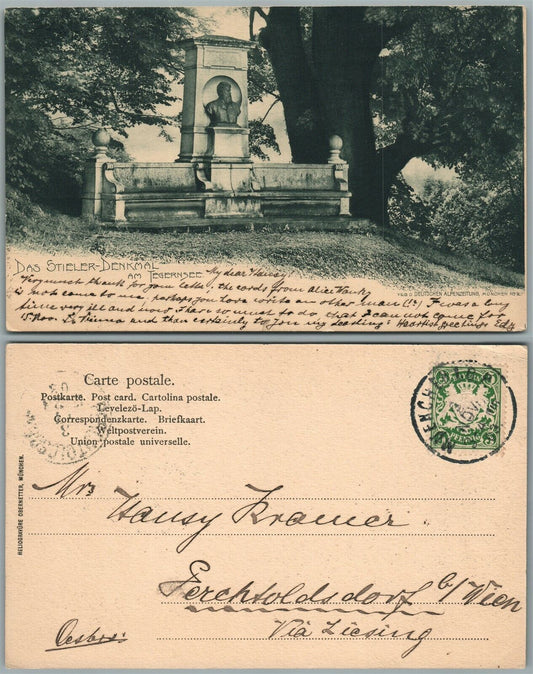 DAS STIELER-DENKMAL
AM TEGERNSEE
VERL. D. DEUTSCHEN ALPENZEITUNG, MÜNCHEN
My dear Hansy!
Very most thank for your letter, the cards from Alice Hanky
is not come to me, perhaps you love wists an other man (!?) I was a long
time very ill and now I have so much to do, that I can not come for
15. Nov. to Vienna and then certainly to
Heartiest greetings
Carte postale.
Postkarte. Post card. Cartolina postale.
Levelező-Lap.
Correspondenzkarte. Briefkaart.
Weltpostverein.
Union postale universelle.
HELIOGRAVÜRE OBERNETTER, MÜNCHEN.
MUENCHEN
Mrs
Hansy Kramer
Perchtoldsdorf b/Wien
Via Liesing
Oesterr.